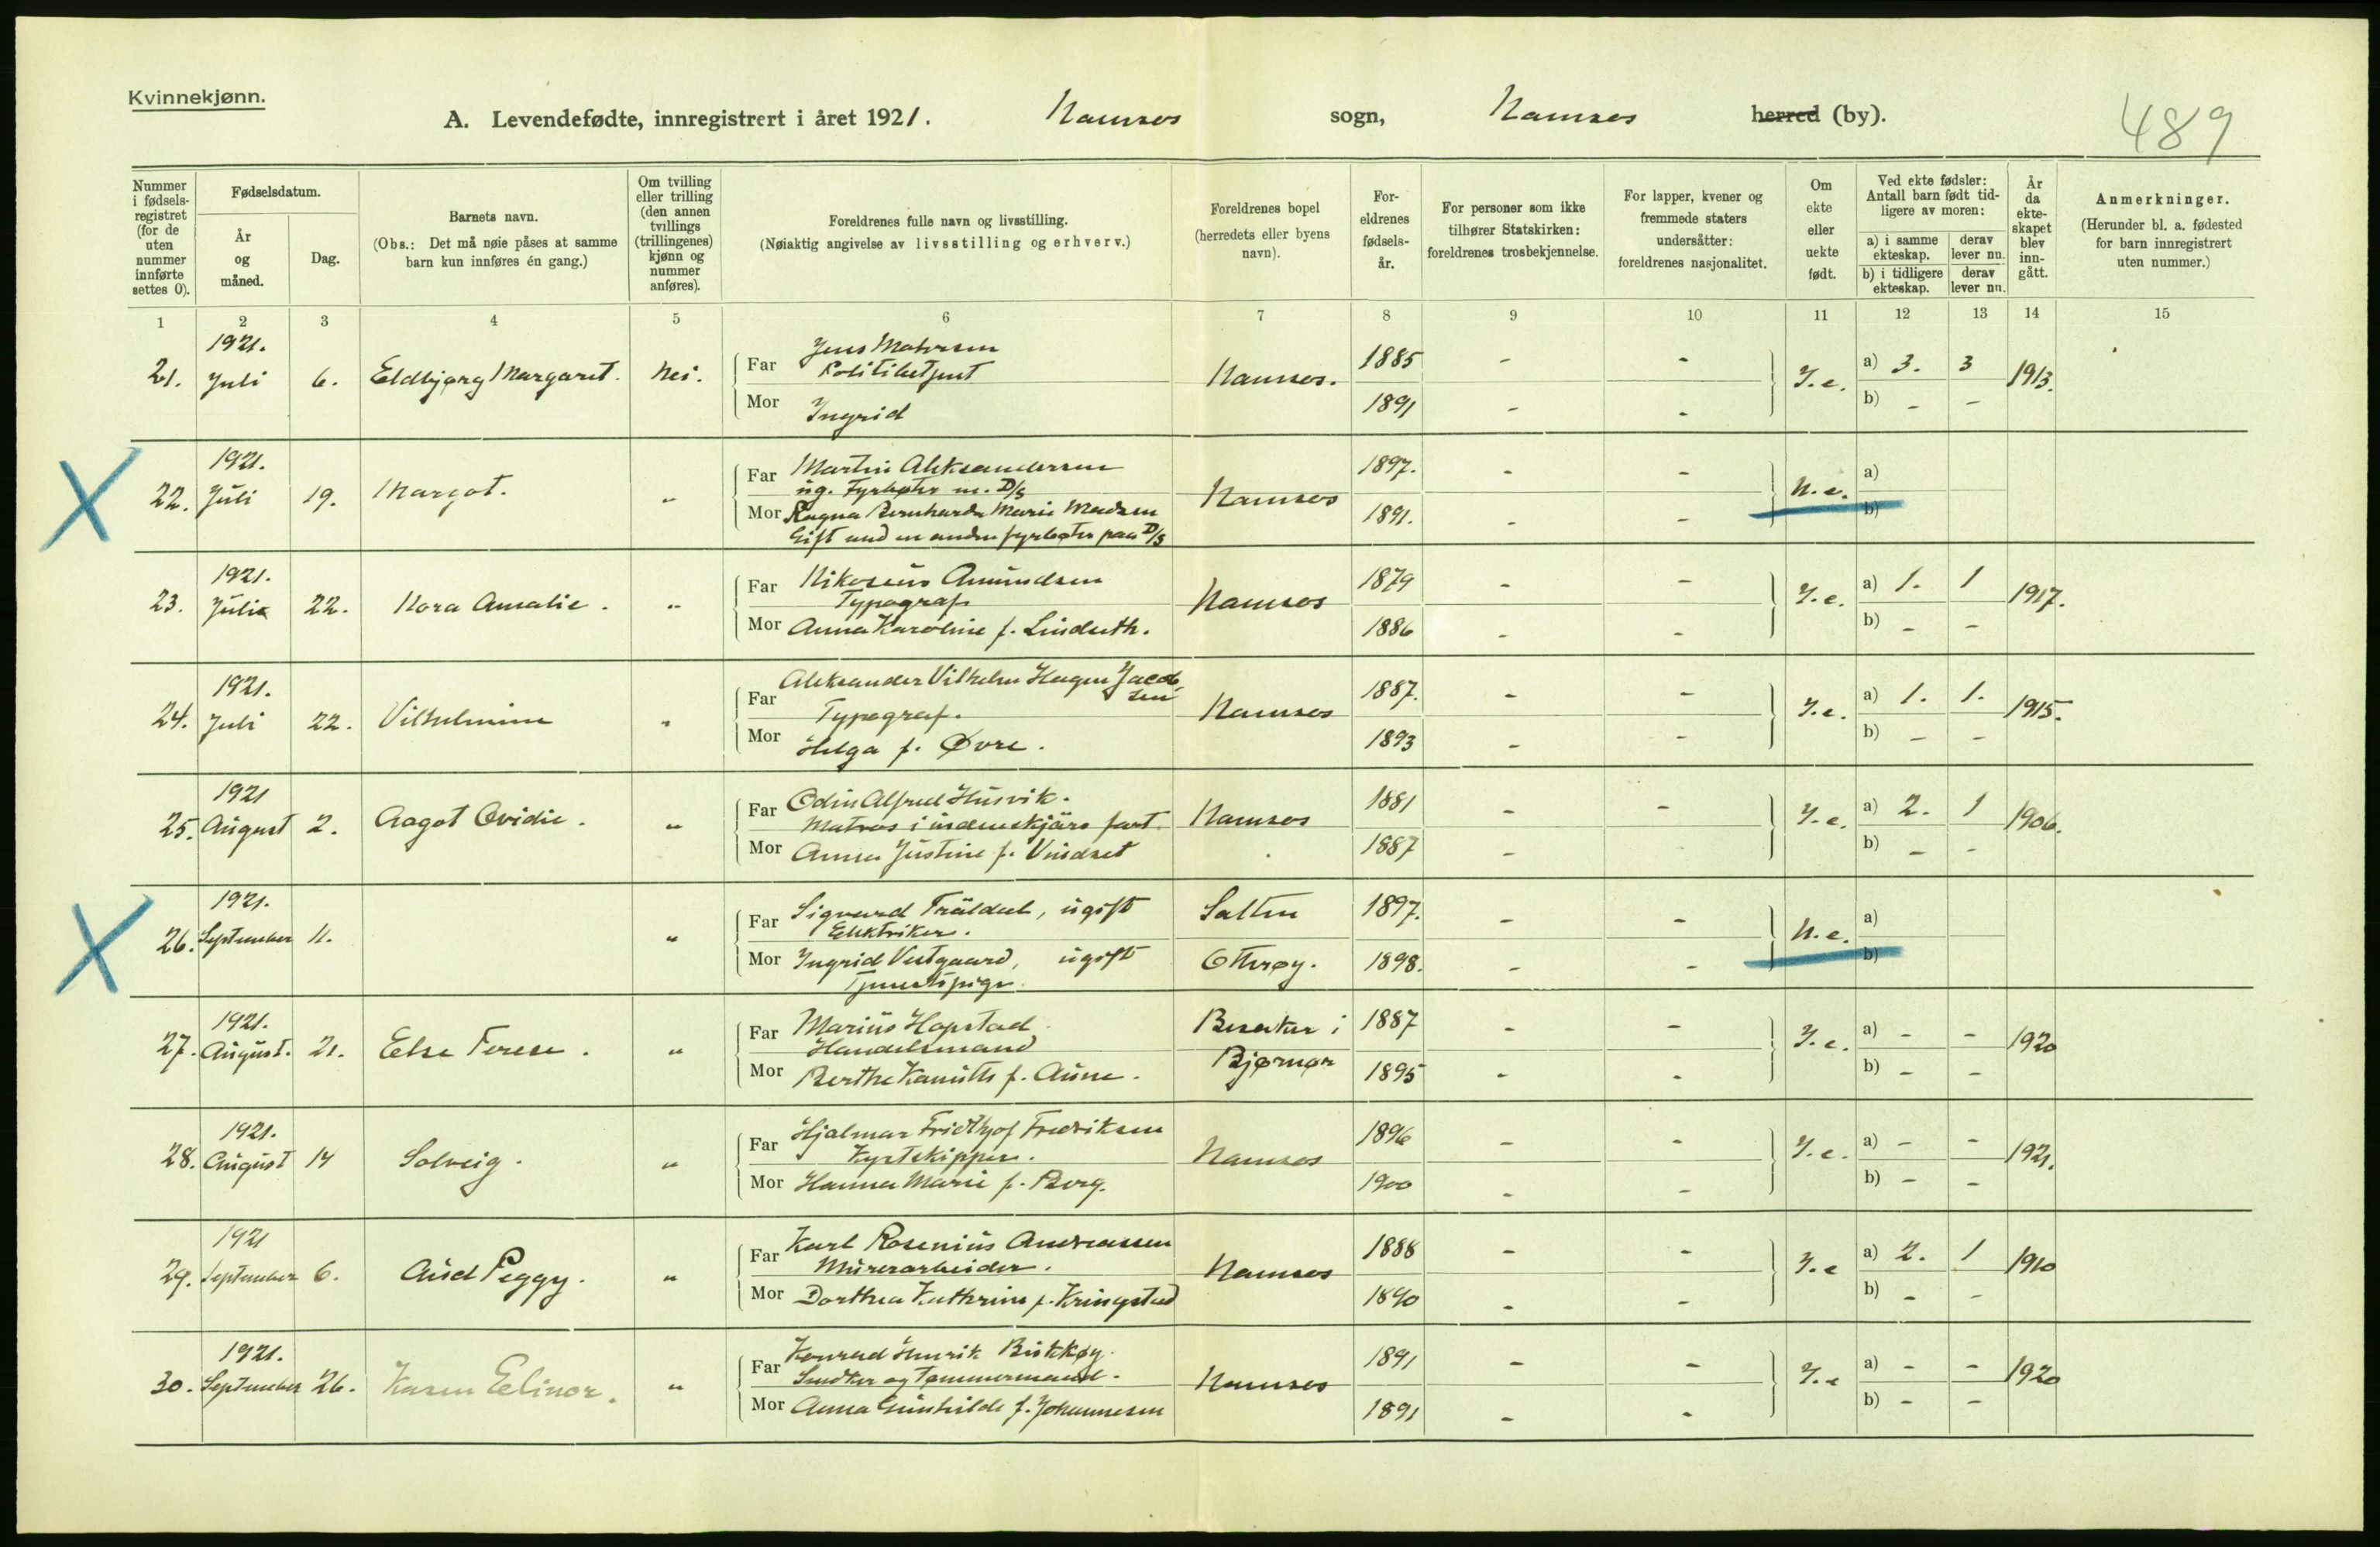 Kvinnekjønn.
A. Levendefødte, innregistrert i året 1921. Namsos sogn, Namsos herred (by).
489
Nummer i fødsels-registret (for de uten nummer innførte settes 0).
Fødselsdatum.
År og måned.
Dag.
Barnets navn.
(Obs.: Det må nøie påses at samme barn kun innføres én gang.)
Om tvilling eller trilling (den annen tvillings (trillingenes) kjønn og nummer anføres).
Foreldrenes fulle navn og livsstilling.
(Nøiaktig angivelse av livsstilling og erhverv.)
Foreldrenes bopel (herredets eller byens navn).
For-eldrenes fødsels-år.
For personer som ikke tilhører Statskirken: foreldrenes trosbekjennelse.
For lapper, kvener og fremmede staters undersåtter: foreldrenes nasjonalitet.
Om ekte eller uekte født.
Ved ekte fødsler: Antall barn født tid-ligere av moren:
a) i samme ekteskap.
derav lever nu.
b) i tidligere ekteskap.
derav lever nu.
År da ekte-skapet blev inn-gått.
Anmerkninger.
(Herunder bl. a. fødested for barn innregistrert uten nummer.)
1 2 3 4 5 6 7 8 9 10 11 12 13 14 15
1921.
21. Juli 6. Eldbjørg Margaret. Nei.
Far Jens
Politibetjent
Mor Ingrid
Namsos. 1885 - -
1891 - -
I.e. a) 3. 3 1913.
b) - -
1921.
22. Juli 19. Margot. "
Far Martin Aleksandersen
ug. Fyrbøter m. D/S
Mor Ragna Bernharda Marie Madsen
Gift med en anden fyrbøter paa D/S
Namsos 1897. - -
1891. - -
U.e. a)
b)
1921.
23. Juli 22. Nora Amalie. "
Far Nikosius Amundsen
Typograf
Mor Anna Karoline f. Lindseth.
Namsos 1879 - -
1886 - -
I.e. a) 1. 1 1917.
b) - -
1921.
24. Juli 22. Vilhelmine "
Far Aleksander Vilhelm Hagen Jacobsen
Typograf.
Mor Helga f. Øvre.
Namsos 1887. - -
1893 - -
I.e. a) 1. 1. 1915.
b) - -
1921
25. August 2. Aagot Ovidie. "
Far Odin Alfred Husvik.
Matros i indenskjärs fart.
Mor Anna Justine f. Vindset
Namsos 1881 - -
1887 - -
I.e. a) 2. 1 1906.
b) - -
1921.
26. September 11. "
Far Sigvard ugift
Elektriker.
Mor Ingrid Vestgaard, ugift
Tjenestepige.
Salten 1897. - -
Otterøy. 1898. - -
U.e. a)
b)
1921.
27. August. 21. Else Terese. "
Far Marius Hopstad
Handelsmand
Mor Berthe Kamille f. Aune.
Besaker i Bjørnør
1887 - -
1895 - -
I.e. a) - - 1920
b) - -
1921.
28. August 14 Solveig. "
Far Hjalmar Fridthjof Fredriksen
Kystskipper.
Mor Hanna Marie f. Berg.
Namsos 1896 - -
1900 - -
I.e. a) - - 1921.
b) - -
1921
29. September 6. Aud Peggy. "
Far Karl Rosenius Andreassen
Murerarbeider.
Mor Dorthea Kathrine f. Kringstad
Namsos 1888 - -
1890 - -
I.e a) 2. 1 1910
b) - -
1921.
30. September 26. Karen Elinor. "
Far Konrad Henrik Bukkøy.
Snedker og Tømmermand.
Mor Anna Gunhilde f. Johannesen
Namsos 1891 - -
1891 - -
I.e a) - - 1920
b) - -